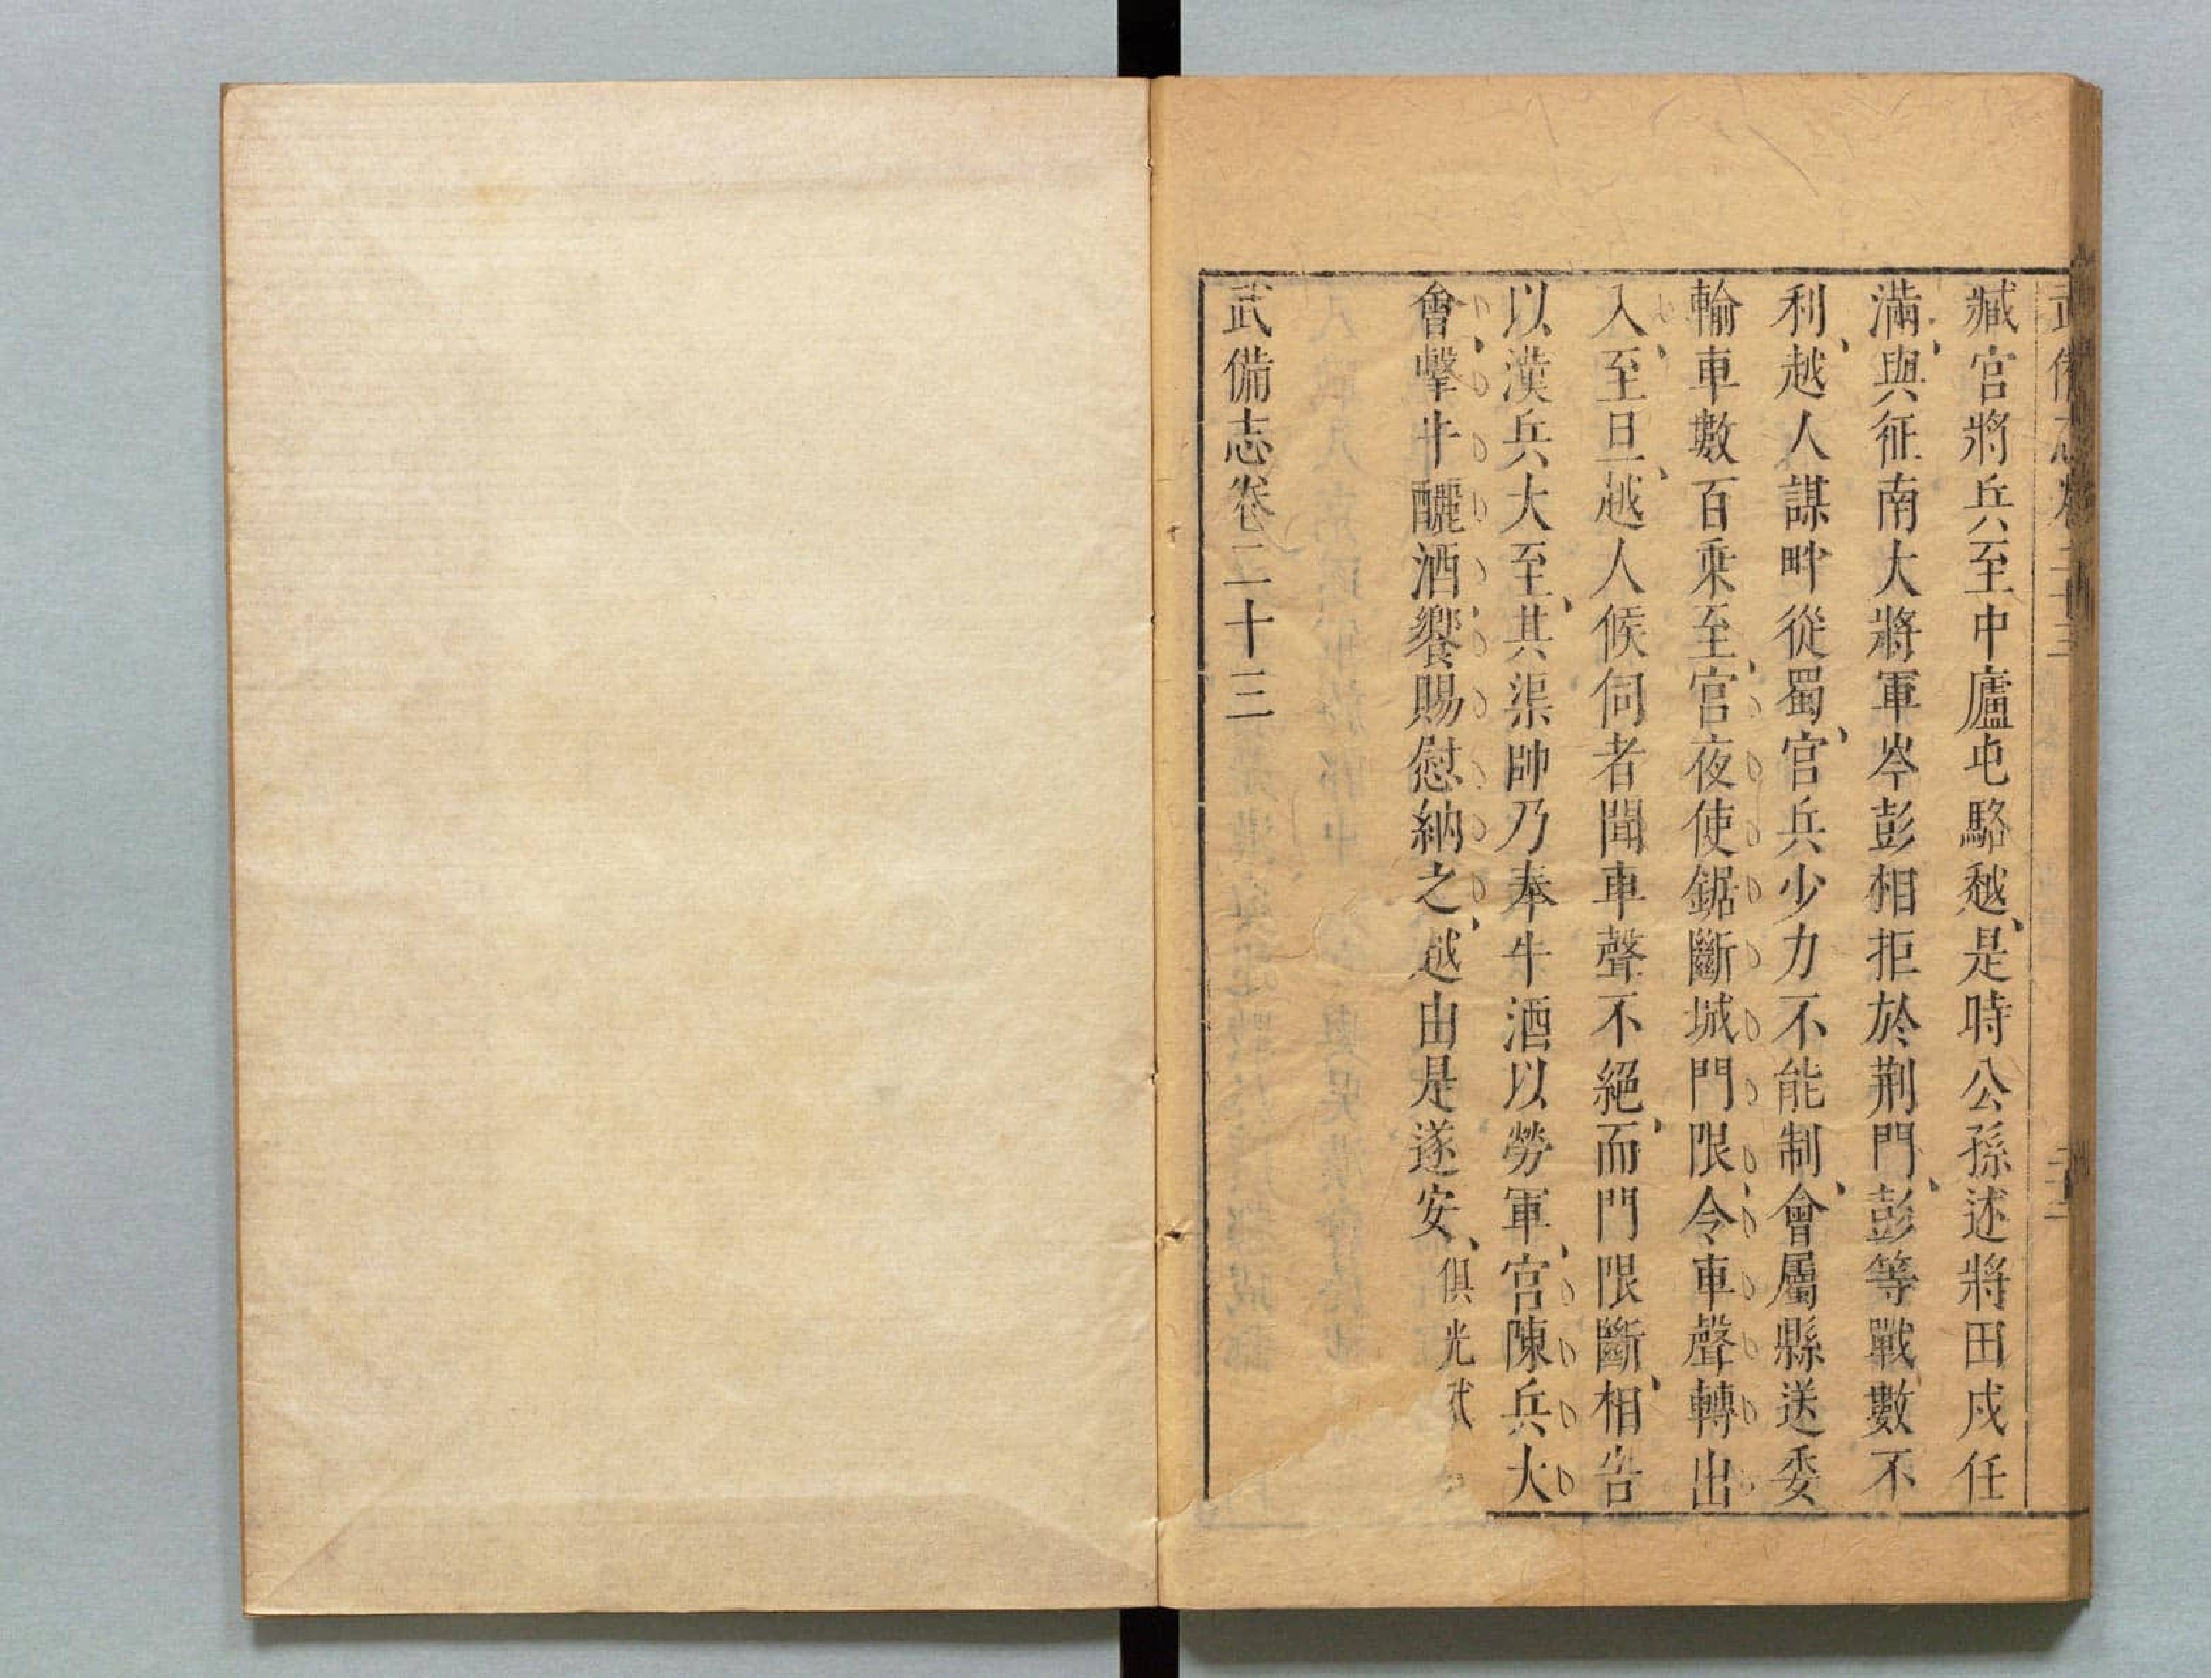 臧宫將兵至中廬屯駱越、是時公孫述將田戎任
滿、與征南大將軍岑彭相拒於荆門、彭等戰數不
利、越人謀畔從蜀、宫兵少力不能制、會屬縣送委
輸車數百乘至、宫夜使鋸斷城門限、令車聲轉出
入、至旦、越人候伺者聞車聲不絕、而門限斷、相告
以漢兵大至、其渠帥乃奉牛酒以勞軍、宫陳兵大
會、擊牛釃酒、饗賜慰納之、越由是遂安、俱光武
武備志卷二十三